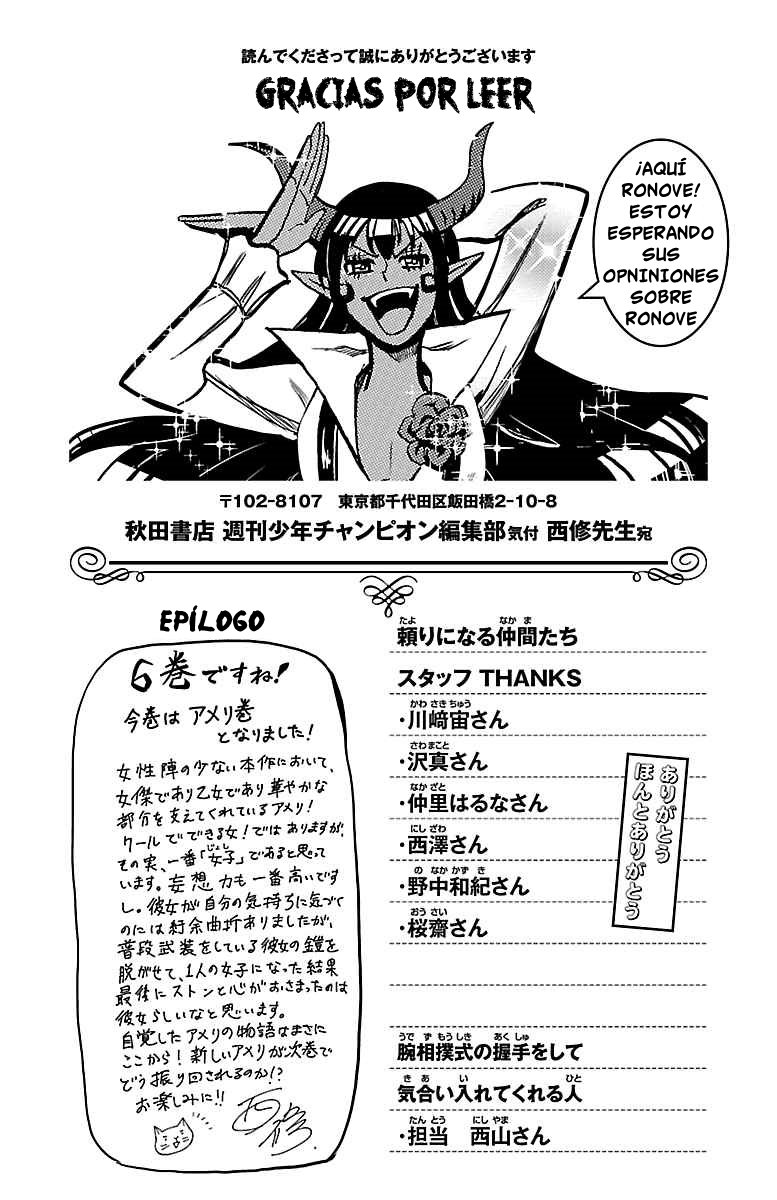 読んでくださって誠にありがとうございます
GRACIAS POR LEER
¡AQUÍ
RONOVE!
ESTOY
ESPERANDO
SUS
OPNINIONES
SOBRE
RONOVE
〒102-8107 東京都千代田区飯田橋2-10-8
秋田書店 週刊少年チャンピオン編集部気付 西修先生宛
EPÍLOGO
6巻ですね!
今巻は アメリ巻
となりました!
女性陣の少ない本作において、
女傑であり乙女であり華やかな
部分を支えてくれているアメリ!
クールでできる女!ではありますが、
その実、一番「女子」であると思って
じょし
います。妄想力も一番高いです
し。彼女が自分の気持ちに気づく
のには紆余曲折ありましたが、
普段武装をしている彼女の鎧を
脱がせて、1人の女子になった結果
最後にストンと心がおさまったのは
彼女らしいなと思います。
自覚したアメリの物語はまさに
ここから!新しいアメリが次巻で
どう振り回されるのか!?
お楽しみに!!
西修
たよ なかま
頼りになる仲間たち
スタッフ THANKS
かわさきちゅう
・川﨑宙さん
さわまこと
・沢真さん
なかざと
・仲里はるなさん
にしざわ
・西澤さん
のなかかずき
・野中和紀さん
おうさい
・桜齋さん
ありがとう
ほんとありがとう
うでずもうしき あくしゅ
腕相撲式の握手をして
きあ い ひと
気合い入れてくれる人
たんとう にしやま
・担当 西山さん